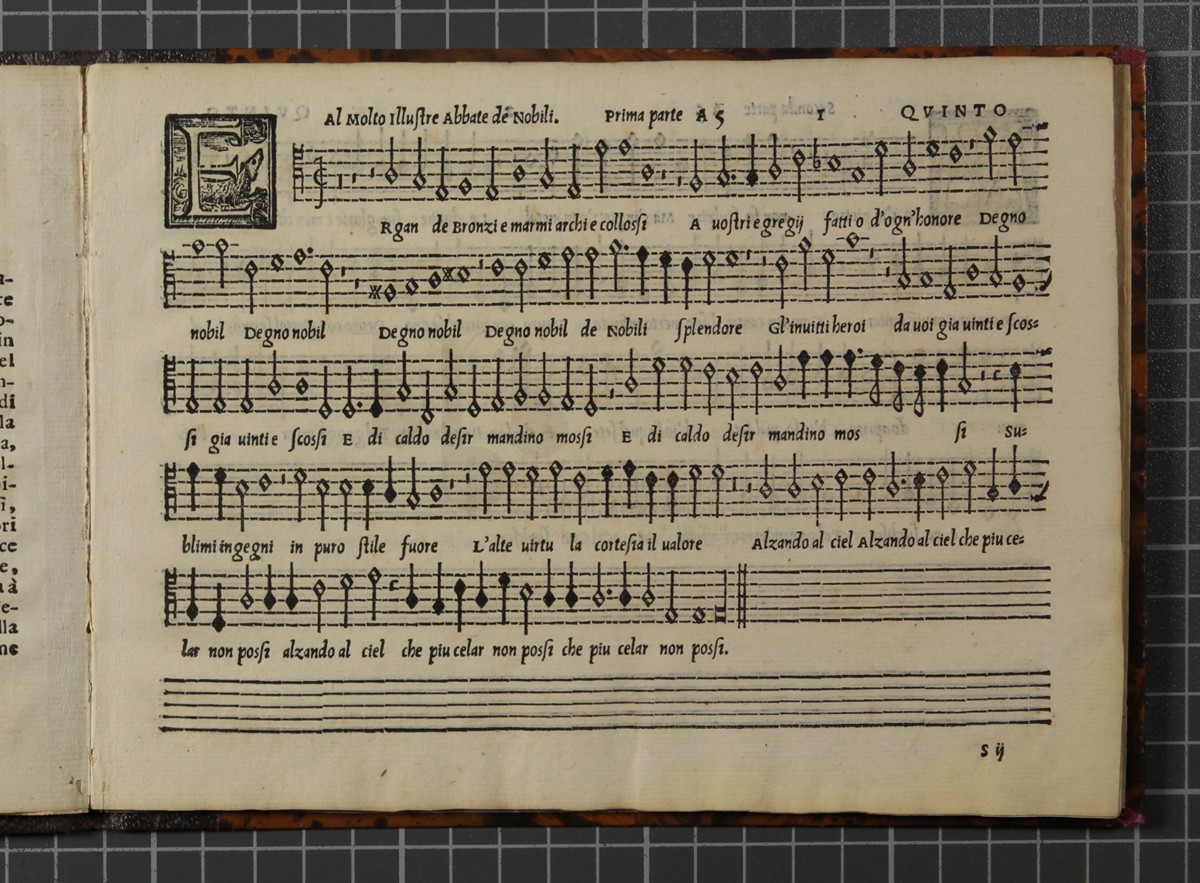 Al Molto Illuſtre Abbate de Nobili. Prima parte A 5 1 QVINTO
E Rgan de Bronzi e marmi archi e colloſsi A uoſtri egregij fatti o d'ogn'honore Degno
nobil Degno nobil Degno nobil Degno nobil de Nobili ſplendore Gl'inuitti heroi da uoi gia uinti e ſcos=
ſi gia uinti e ſcoſsi E di caldo deſir mandino moſsi E di caldo deſir mandino mos ſi Su=
blimi ingegni in puro ſtile fuore L'alte uirtu la corteſia il ualore Alzando al ciel Alzando al ciel che piu ce=
lar non poſsi alzando al ciel che piu celar non poſsi che piu celar non poſsi.
S ij